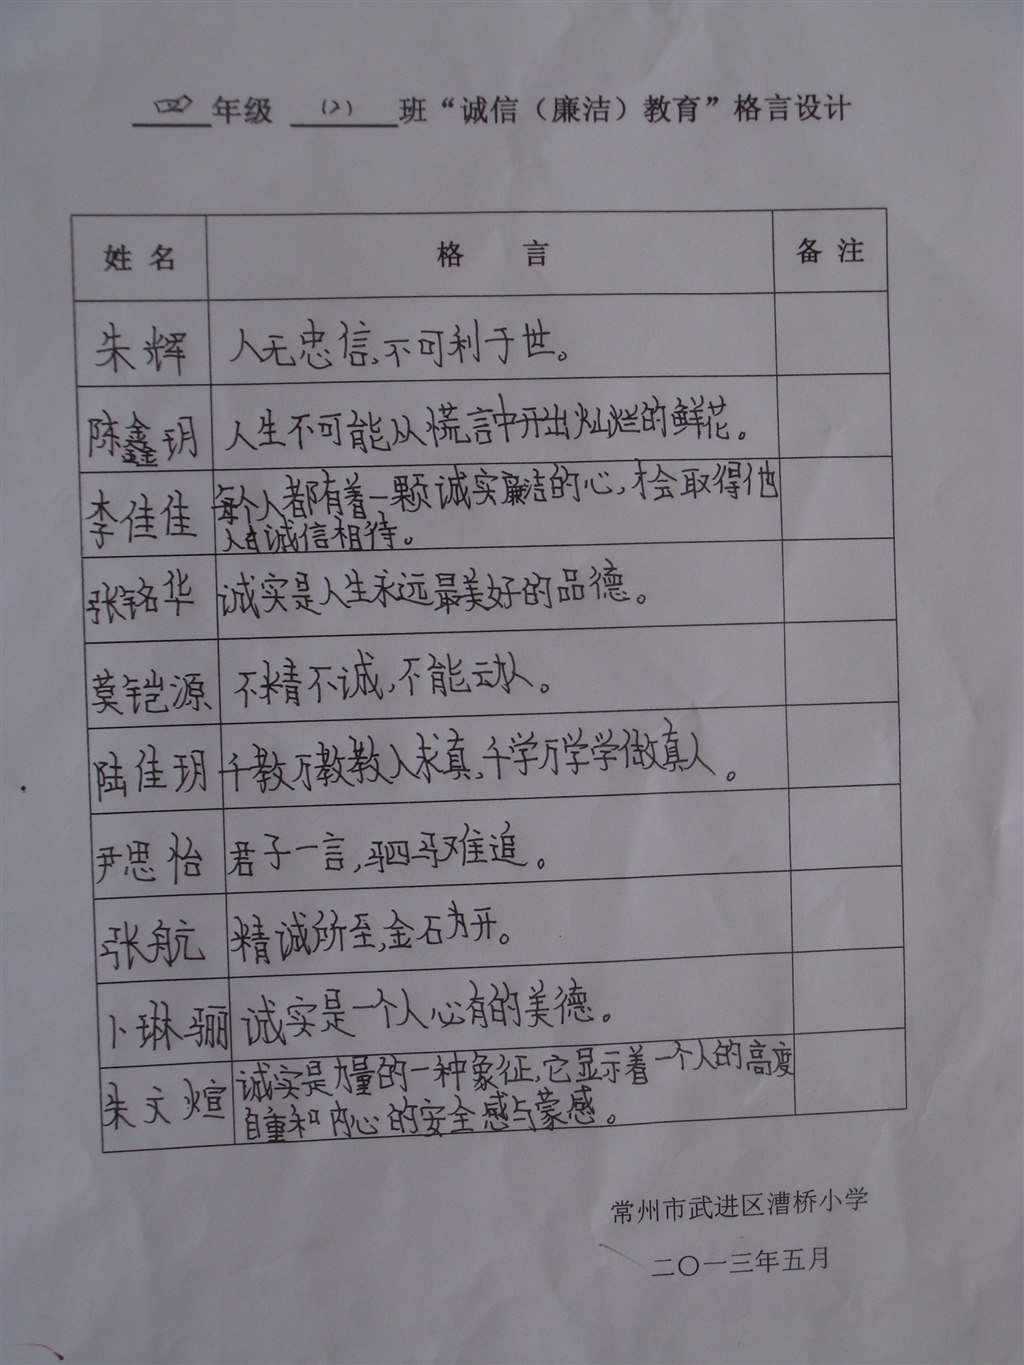 四年级 (2) 班“诚信（廉洁）教育”格言设计
姓名 格言 备注
朱辉 人无忠信,不可利于世。
陈鑫玥 人生不可能从慌言中开出灿烂的鲜花。
李佳佳 每个人都有着一颗诚实廉洁的心,才会取得他
人的诚信相待。
张铭华 诚实是人生永远最美好的品德。
莫铠源 不精不诚,不能动人。
陆佳玥 千教万教教人求真,千学万学学做真人。
尹思怡 君子一言,驷马难追。
张航 精诚所至,金石为开。
卜琳骊 诚实是一个人必有的美德。
朱文煊 诚实是力量的一种象征,它显示着一个人的高度
自重和内心的安全感与蒙感。
常州市武进区漕桥小学
二〇一三年五月